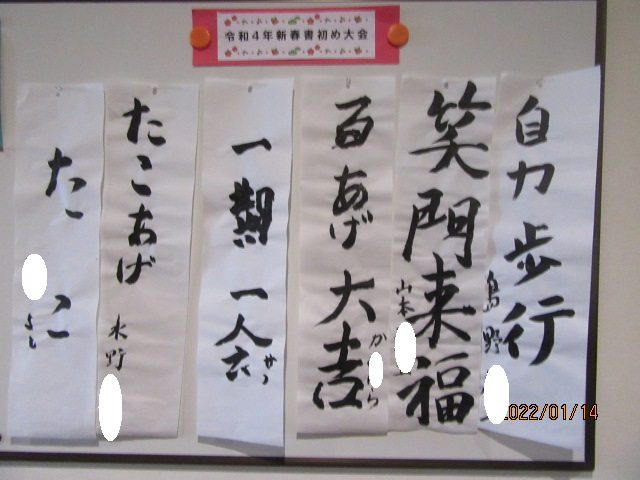 令和4年新春書初め大会
自力歩行
島野
笑門来福
山本
百あげ大吉
一
一人
たこあげ
水野
たこ
よし
2022/01/14